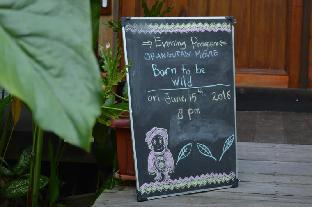 Evening Program
ORANGUTAN MOVIE
Born to be
wild
on June 15th 2016
8 pm